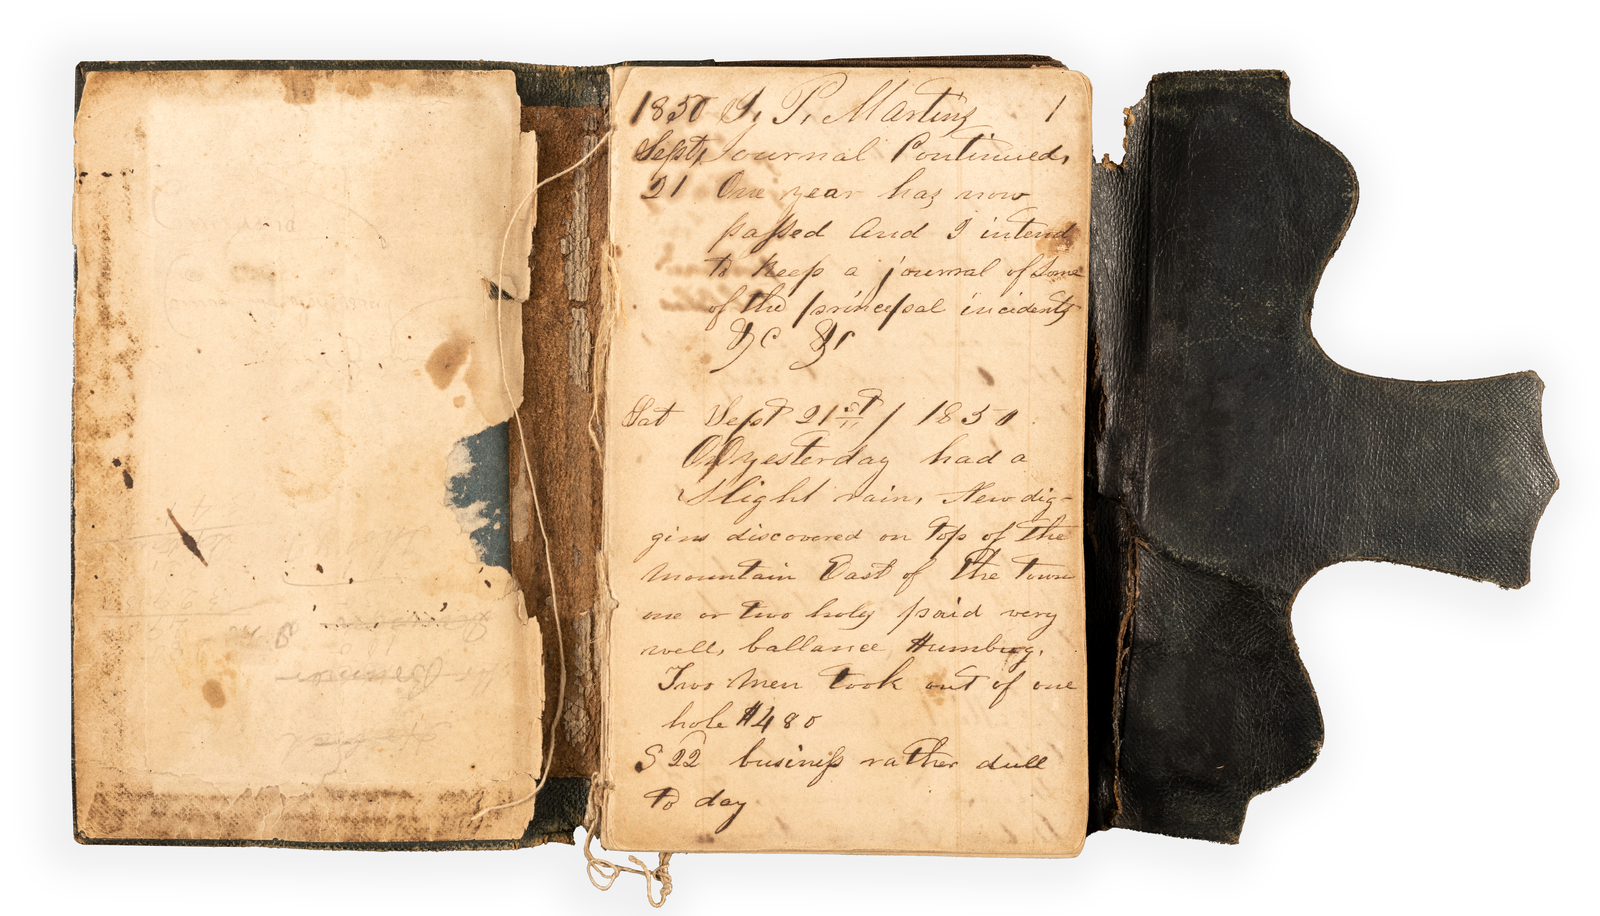 1850 J. P. Martin's 1
Sept, Journal Continued,
21 One year has now
passed and I intend
to keep a journal of some
of the principal incidents
&c &c
Sat Sept 21st / 1850
On yesterday had a
Slight rain, New dig-
gins discovered on top of the
mountain East of the Town
one or two holes paid very
well, ballance Humbug.
Two men took out of one
hole $480
S 22 business rather dull
to day